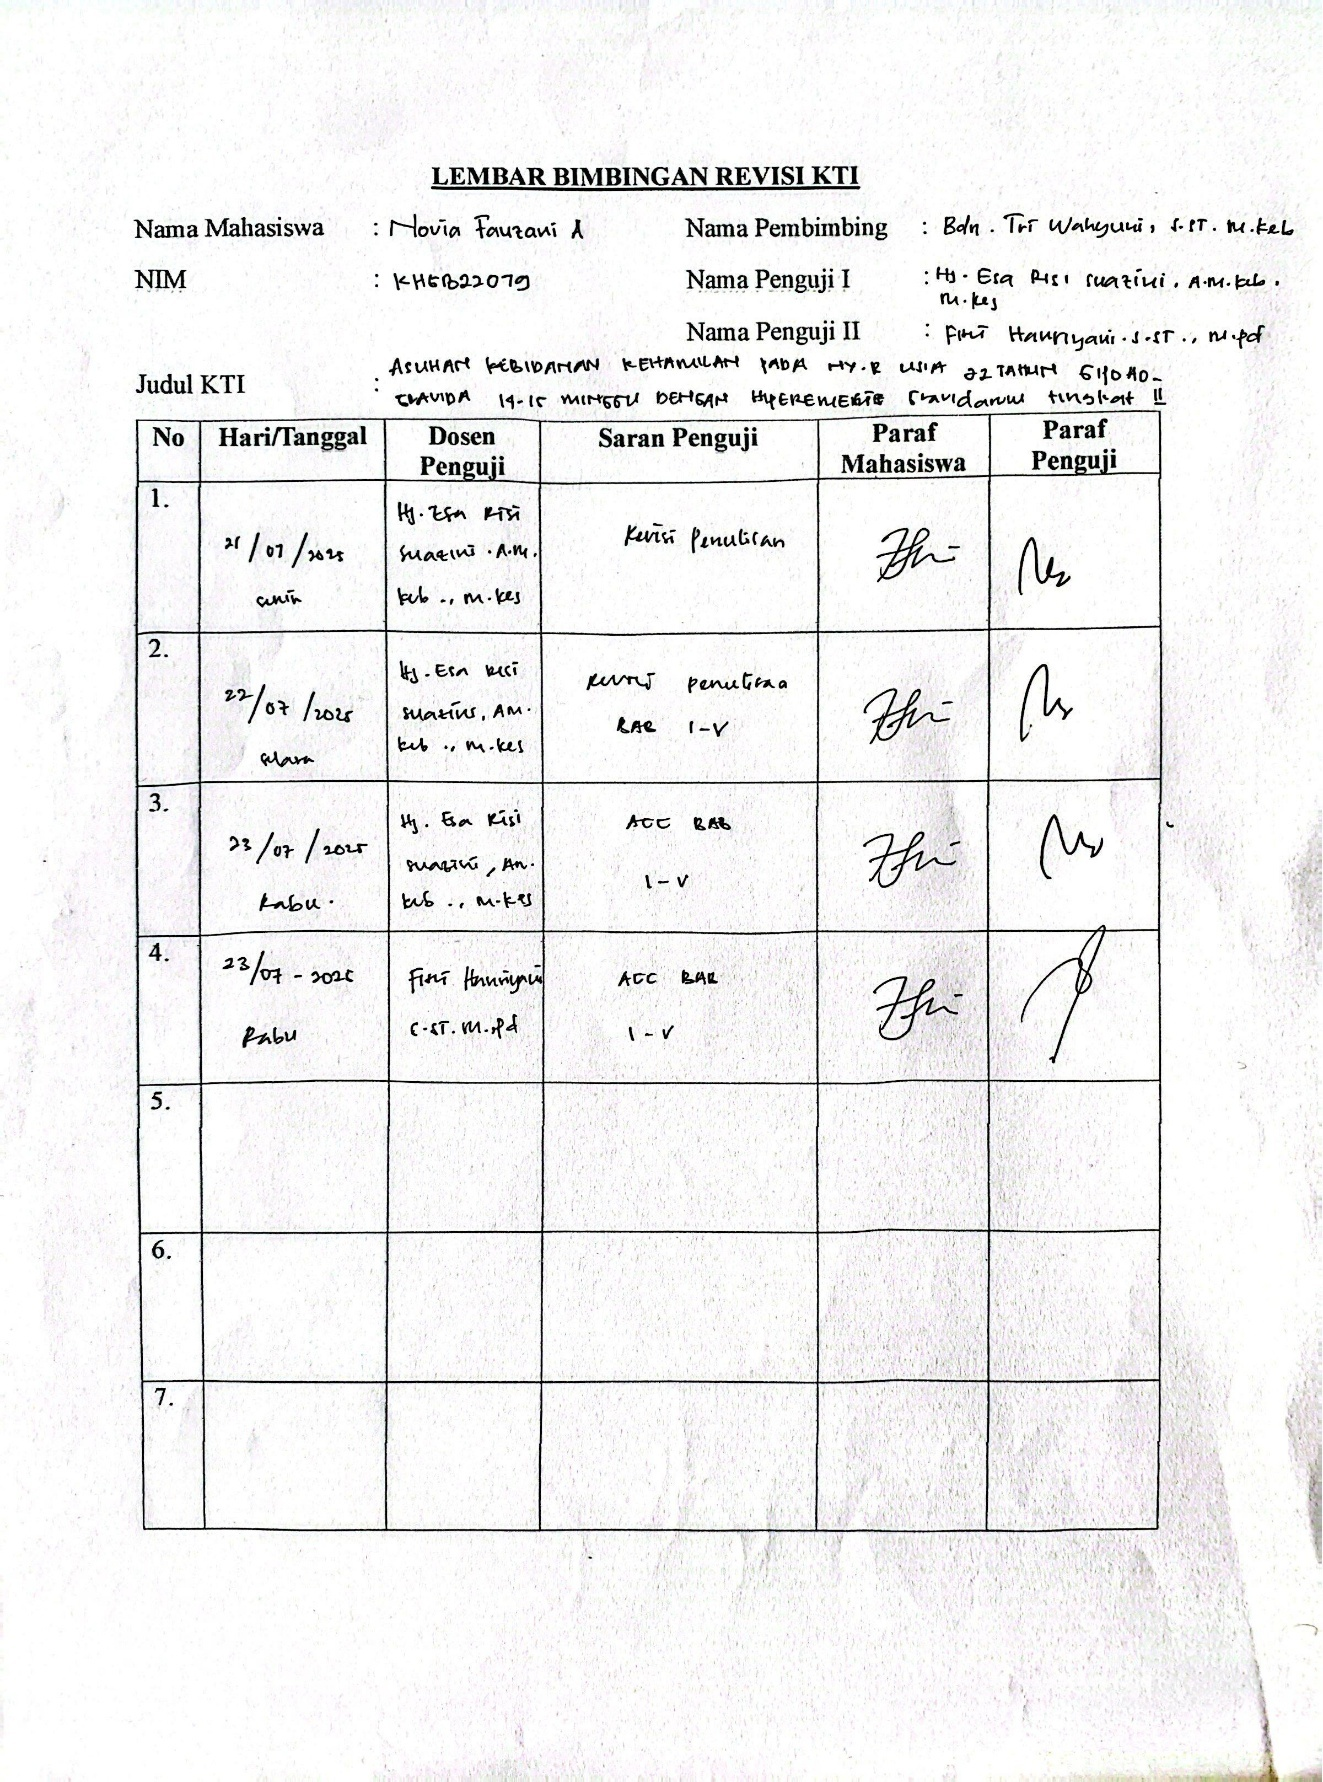 LEMBAR BIMBINGAN REVISI KTI
Nama Mahasiswa : Novia Fauzani A Nama Pembimbing : Bdn. Tri Wahyuni, S.ST. M.Keb
NIM : KHGB22079 Nama Penguji I : Hj. Esa Risi Suazini, A.M.Keb.
M.Kes
Nama Penguji II : Finti Hauriyani. S.ST., M.Pd
Judul KTI : ASUHAN KEBIDANAN KEHAMILAN PADA NY.R USIA 22 TAHUN G1P0A0
GRAVIDA 14-15 MINGGU DENGAN HYPEREMESIS Gravidarum tingkat II
No Hari/Tanggal Dosen Penguji Saran Penguji Paraf Mahasiswa Paraf Penguji
1.
21/07/2025
senin
Hj. Esa Risi
Suazini. A.M.
Keb., M.Kes
Revisi Penulisan
2.
22/07/2025
selasa
Hj. Esa Risi
Suazini, AM.
Keb., M.Kes
Revisi penulisan
BAB I-V
3.
23/07/2025
Rabu.
Hj. Esa Risi
Suazini, Am.
Keb., M.Kes
ACC BAB
I-V
4.
23/07-2025
Rabu
S.ST. M.Pd
ACC BAB
I-V
5.
6.
7.